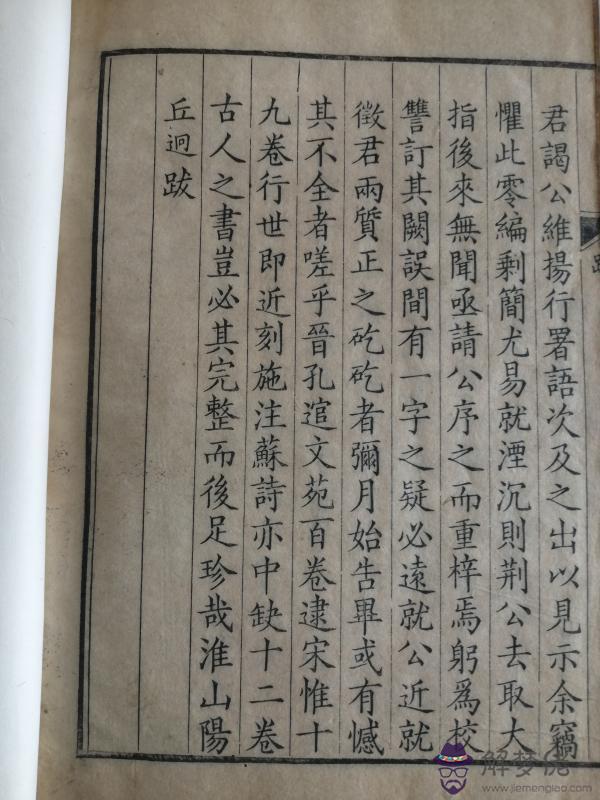 君謁公維揚行署語次及之出以見示余竊
懼此零編剩簡尤易就湮沉則荆公去取大
指後來無聞亟請公序之而重梓焉躬爲校
讐訂其闕誤間有一字之疑必遠就公近就
徵君兩質正之矻矻者彌月始告畢或有憾
其不全者嗟乎晉孔逭文苑百卷逮宋惟十
九卷行世即近刻施注蘇詩亦中缺十二卷
古人之書豈必其完整而後足珍哉淮山陽
丘迥跋
解梦佬
www.jiemenglao.com